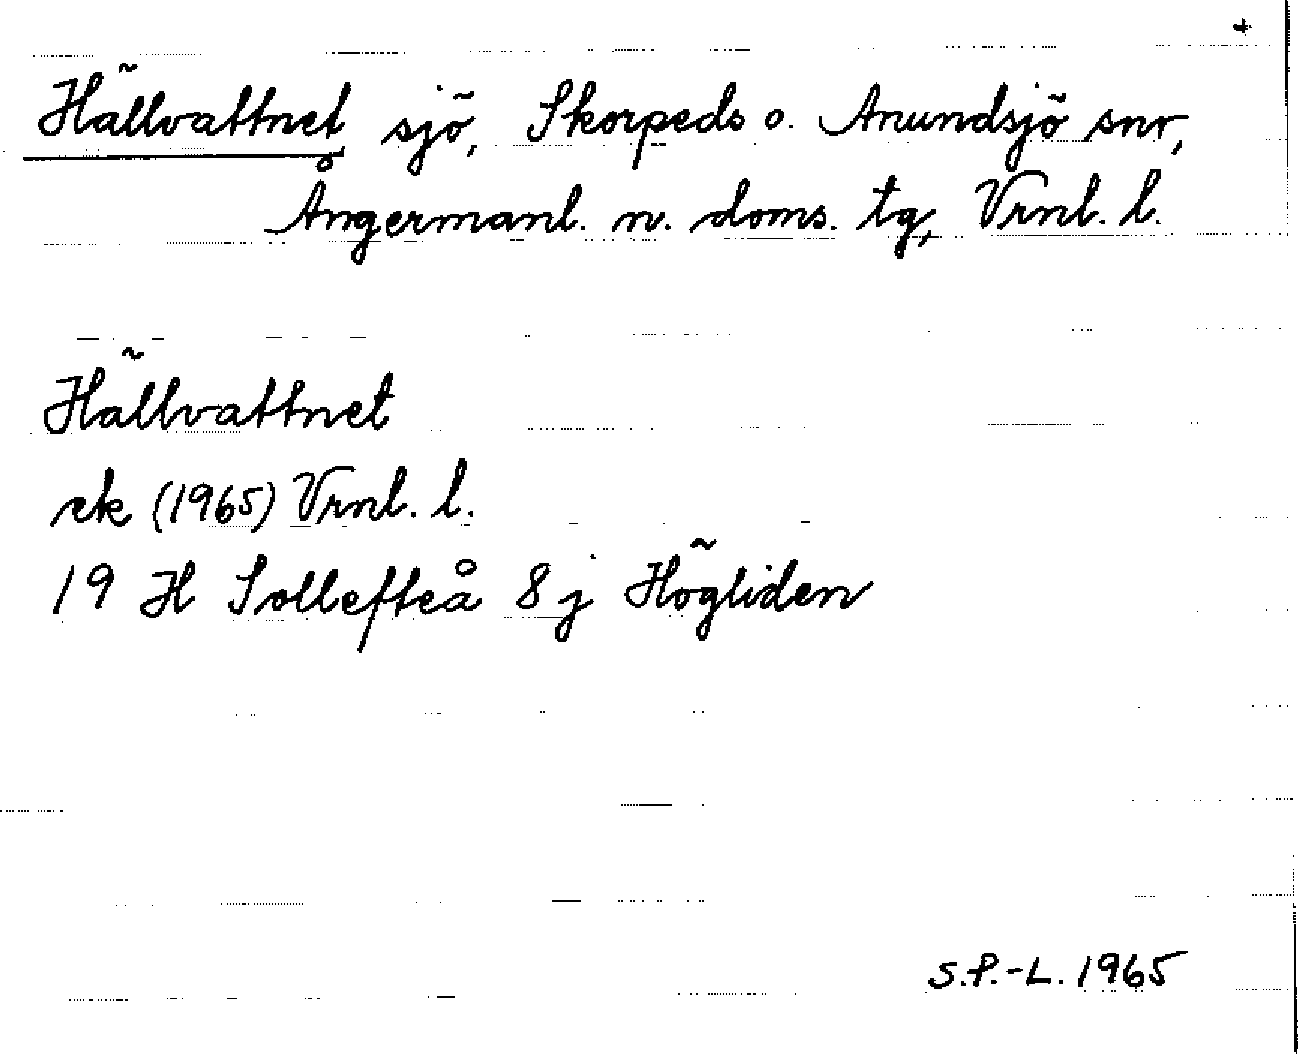 +
Hällvattnet sjö, Skorpeds o. Anundsjö snr,
Ångermanl. n. doms. tg, Vrnl. l.
Hällvattnet
ek (1965) Vrnl. l.
19 H Sollefteå 8 j Högliden
S.P.-L. 1965